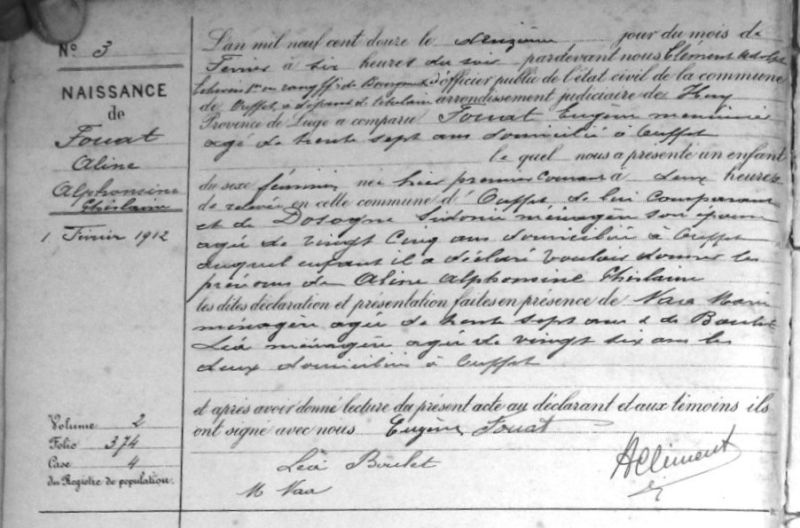 N° 3
NAISSANCE
de
Fouat
Aline
Alphonsine
Ghislaine
1 Février 1912
Volume 2
Folio 374
Case 4
du Registre de population.
L'an mil neuf cent douze le deuxième jour du mois de
Février à six heures du soir pardevant nous Clément
Echevin officier public de l'état civil de la commune
de Ouffet arrondissement judiciaire de Huy
Province de Liège a comparu Fouat Eugène menuisier
agé de trente sept ans domicilié à Ouffet
le quel nous a présenté un enfant
du sexe féminin née hier premier courant à deux heures
de relevée en cette commune d'Ouffet de lui comparant
et de Dosogne Sidonie ménagère son épouse
agée de vingt cinq ans domiciliée à Ouffet
auquel enfant il a déclaré vouloir donner les
prénoms de Aline Alphonsine Ghislaine
les dites déclaration et présentation faites en présence de Naa Marie
ménagère agée de trente sept ans & de Boulet
Léa ménagère agée de vingt six ans les
deux domiciliées à Ouffet
et après avoir donné lecture du présent acte au déclarant et aux témoins ils
ont signé avec nous Eugène Fouat
Léa Boulet
M Naa
A Clément